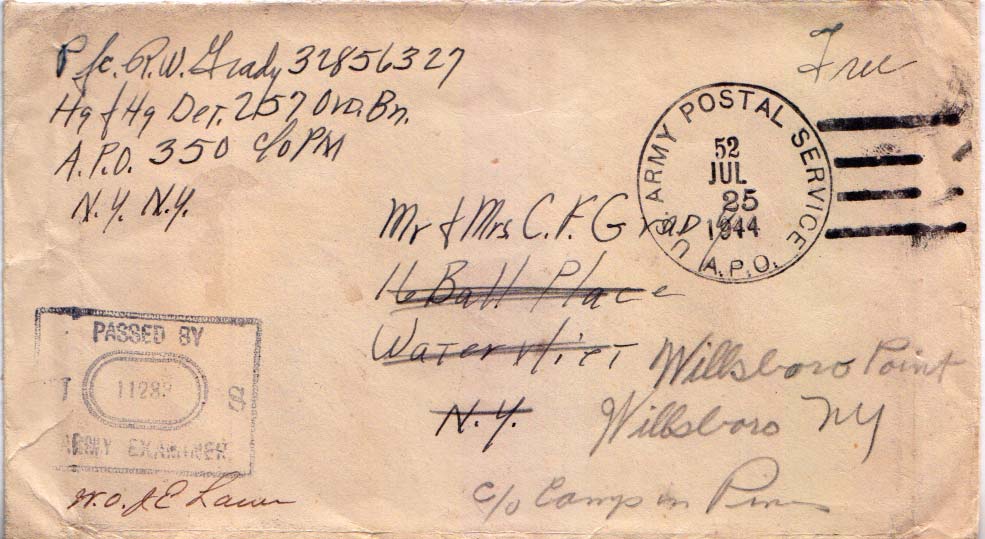 Pfc. R.W. Grady 32856327
Hq & Hq Det. 257 Ord. Bn.
A.P.O. 350 c/o PM
N.Y. N.Y.
Free
U.S. ARMY POSTAL SERVICE
52
JUL
25
1944
A.P.O.
Mr & Mrs C. F. Grady
16 Ball Place
Watervliet
N.Y.
Willsboro Point
Willsboro NY
c/o Camp in Pines
PASSED BY
ARMY EXAMINER
W.O. J E